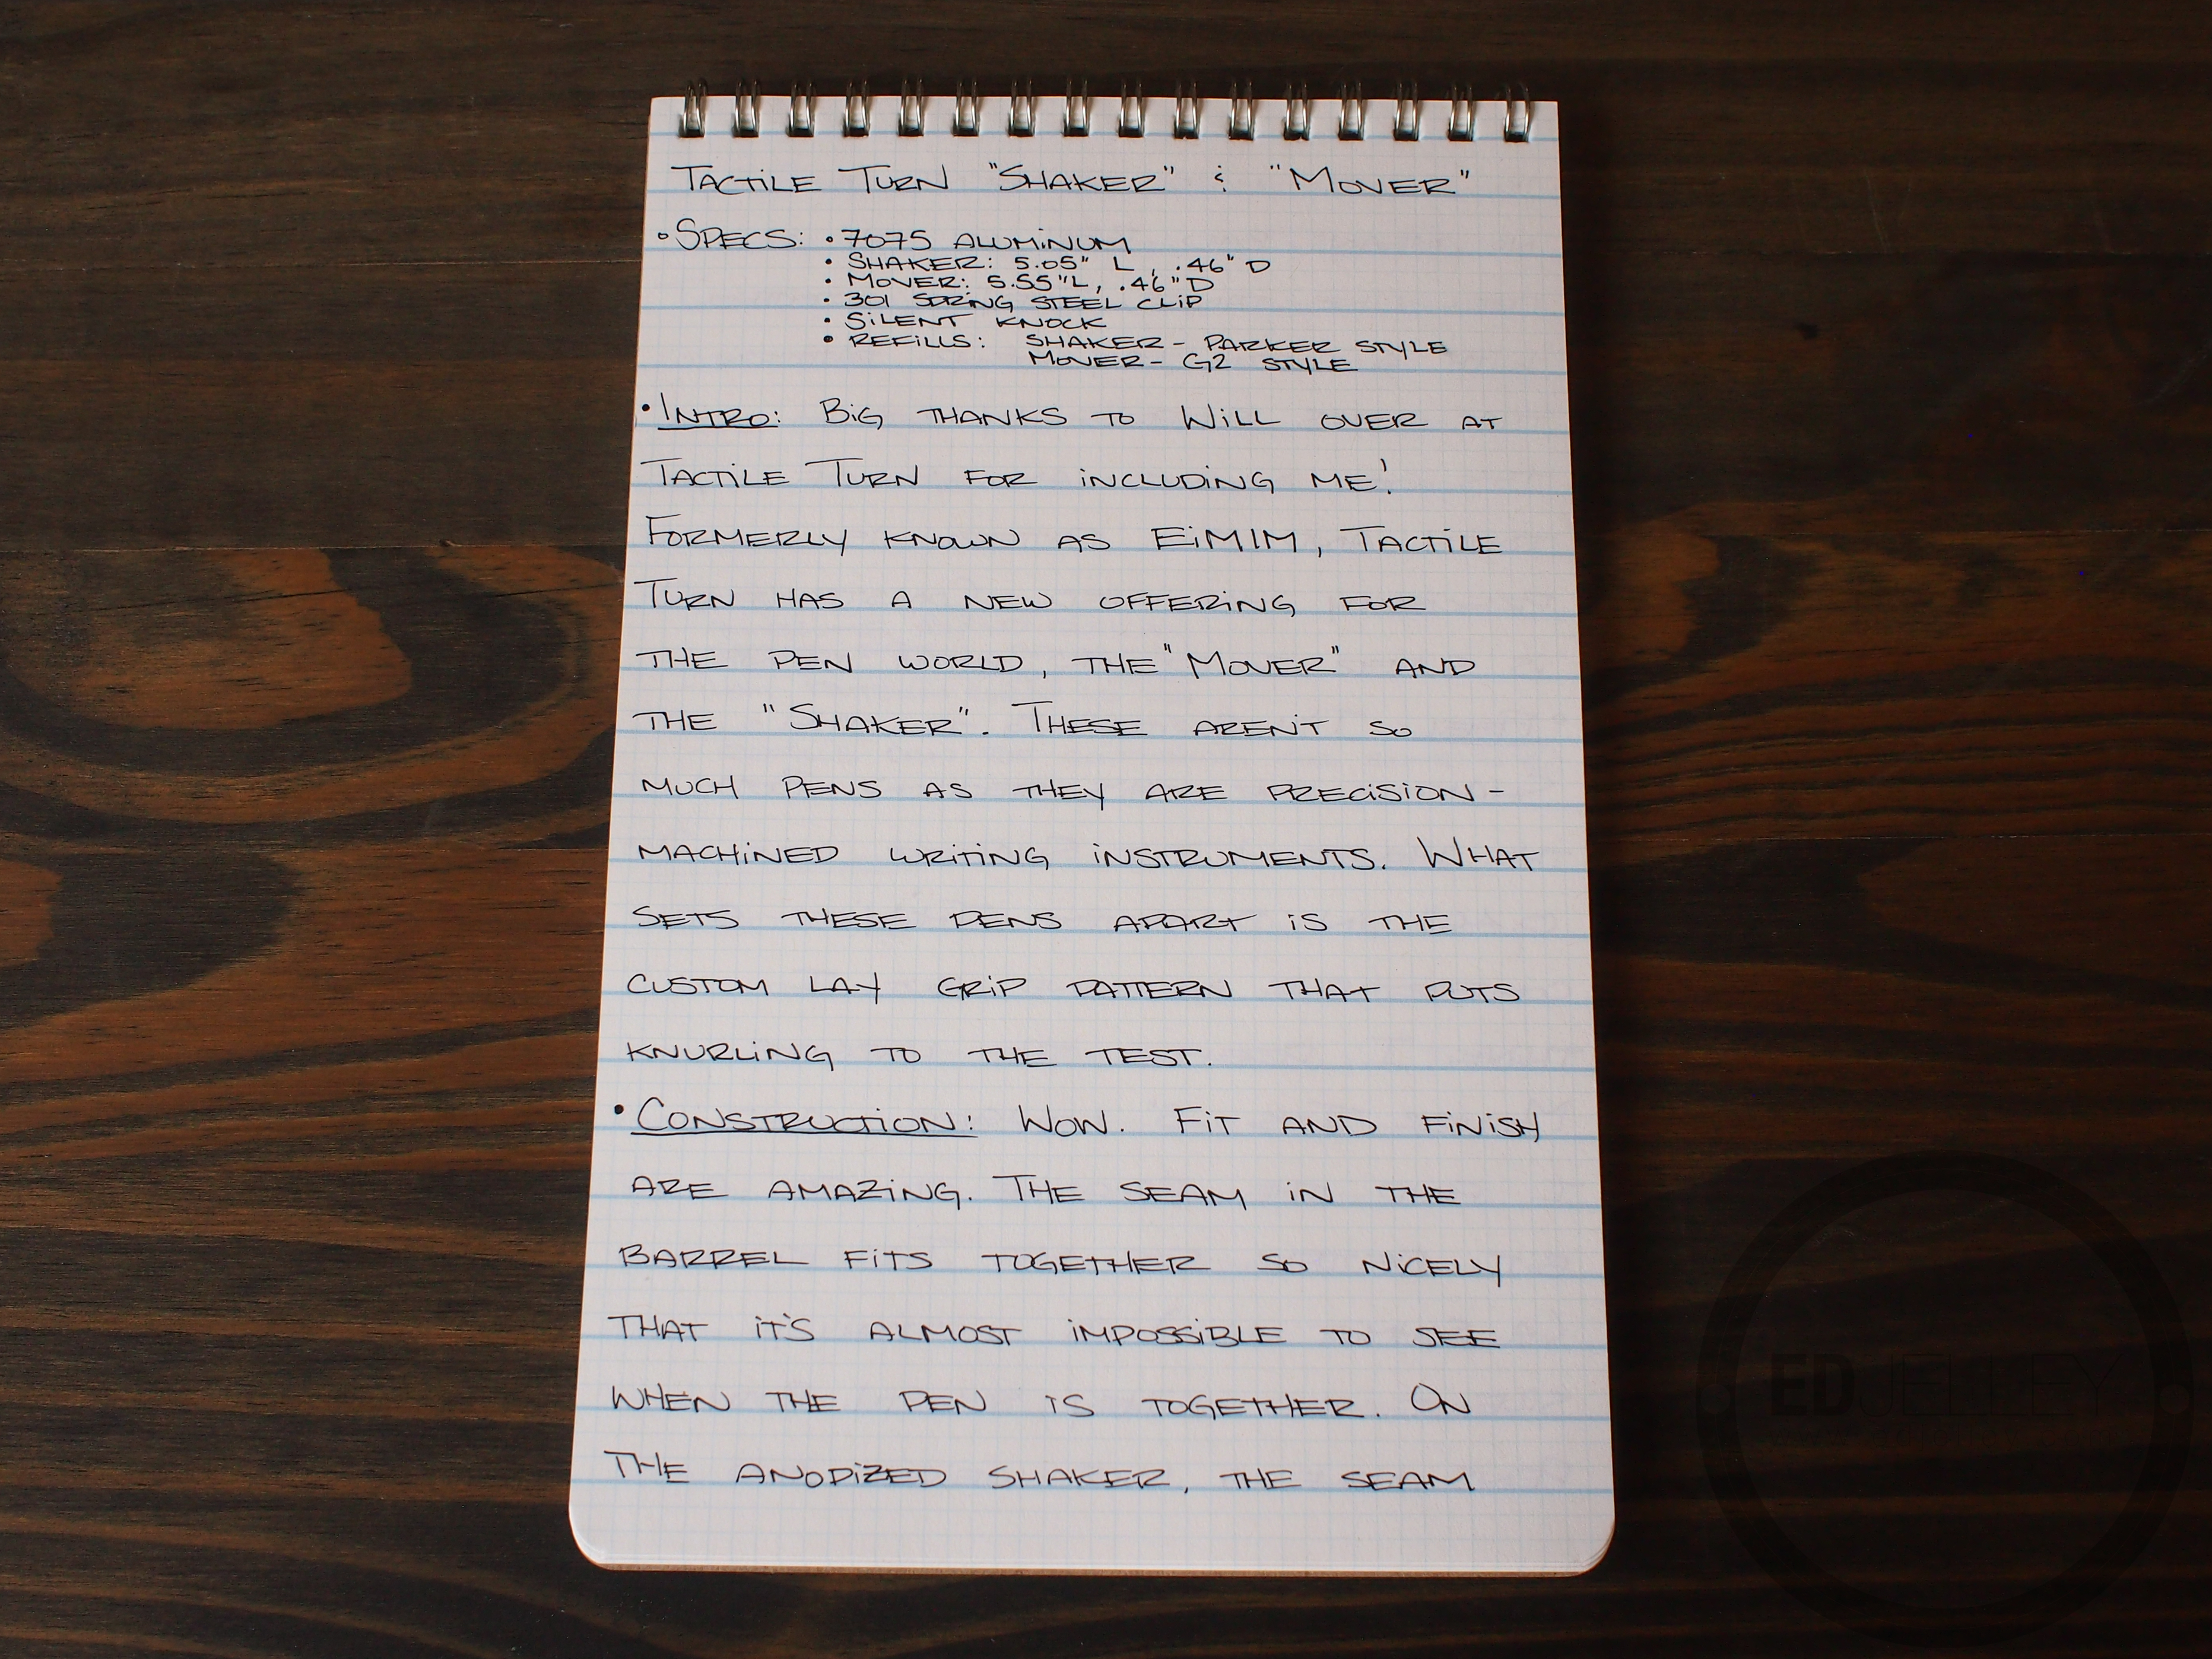 TACTILE TURN "SHAKER" & "MOVER"
• SPECS: • 7075 ALUMINUM
• SHAKER: 5.05" L, .46" D
• MOVER: 5.55"L, .46"D
• 301 SPRING STEEL CLIP
• SILENT KNOCK
• REFILLS: SHAKER - PARKER STYLE
MOVER - G2 STYLE
• INTRO: BIG THANKS TO WILL OVER AT
TACTILE TURN FOR INCLUDING ME!
FORMERLY KNOWN AS EIMIM, TACTILE
TURN HAS A NEW OFFERING FOR
THE PEN WORLD, THE "MOVER" AND
THE "SHAKER". THESE AREN'T SO
MUCH PENS AS THEY ARE PRECISION-
MACHINED WRITING INSTRUMENTS. WHAT
SETS THESE PENS APART IS THE
CUSTOM LAY GRIP PATTERN THAT PUTS
KNURLING TO THE TEST.
• CONSTRUCTION: WOW. FIT AND FINISH
ARE AMAZING. THE SEAM IN THE
BARREL FITS TOGETHER SO NICELY
THAT IT'S ALMOST IMPOSSIBLE TO SEE
WHEN THE PEN IS TOGETHER. ON
THE ANODIZED SHAKER, THE SEAM
ED JELLEY